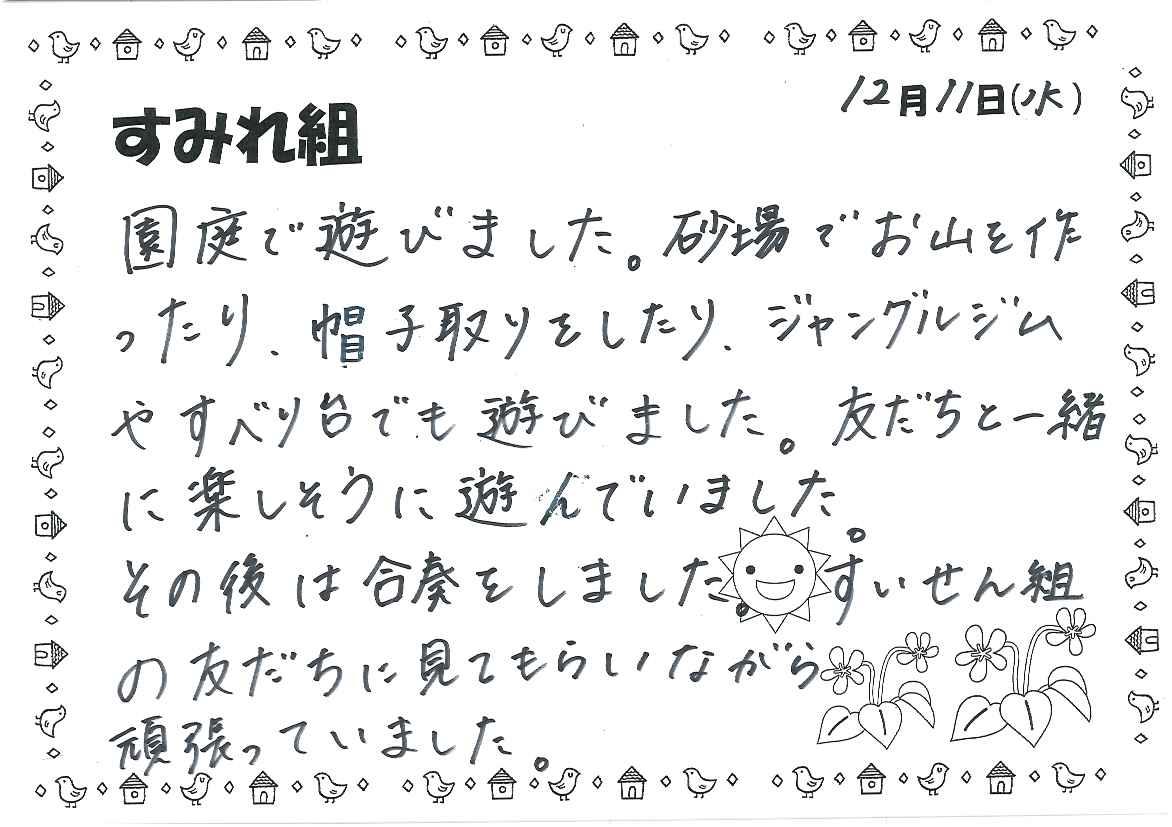 12月11日(水)
すみれ組
園庭で遊びました。砂場でお山を作
ったり、帽子取りをしたり、ジャングルジム
やすべり台でも遊びました。友だちと一緒
に楽しそうに遊んでいました。
その後は合奏をしました。すいせん組
の友だちに見てもらいながら
頑張っていました。